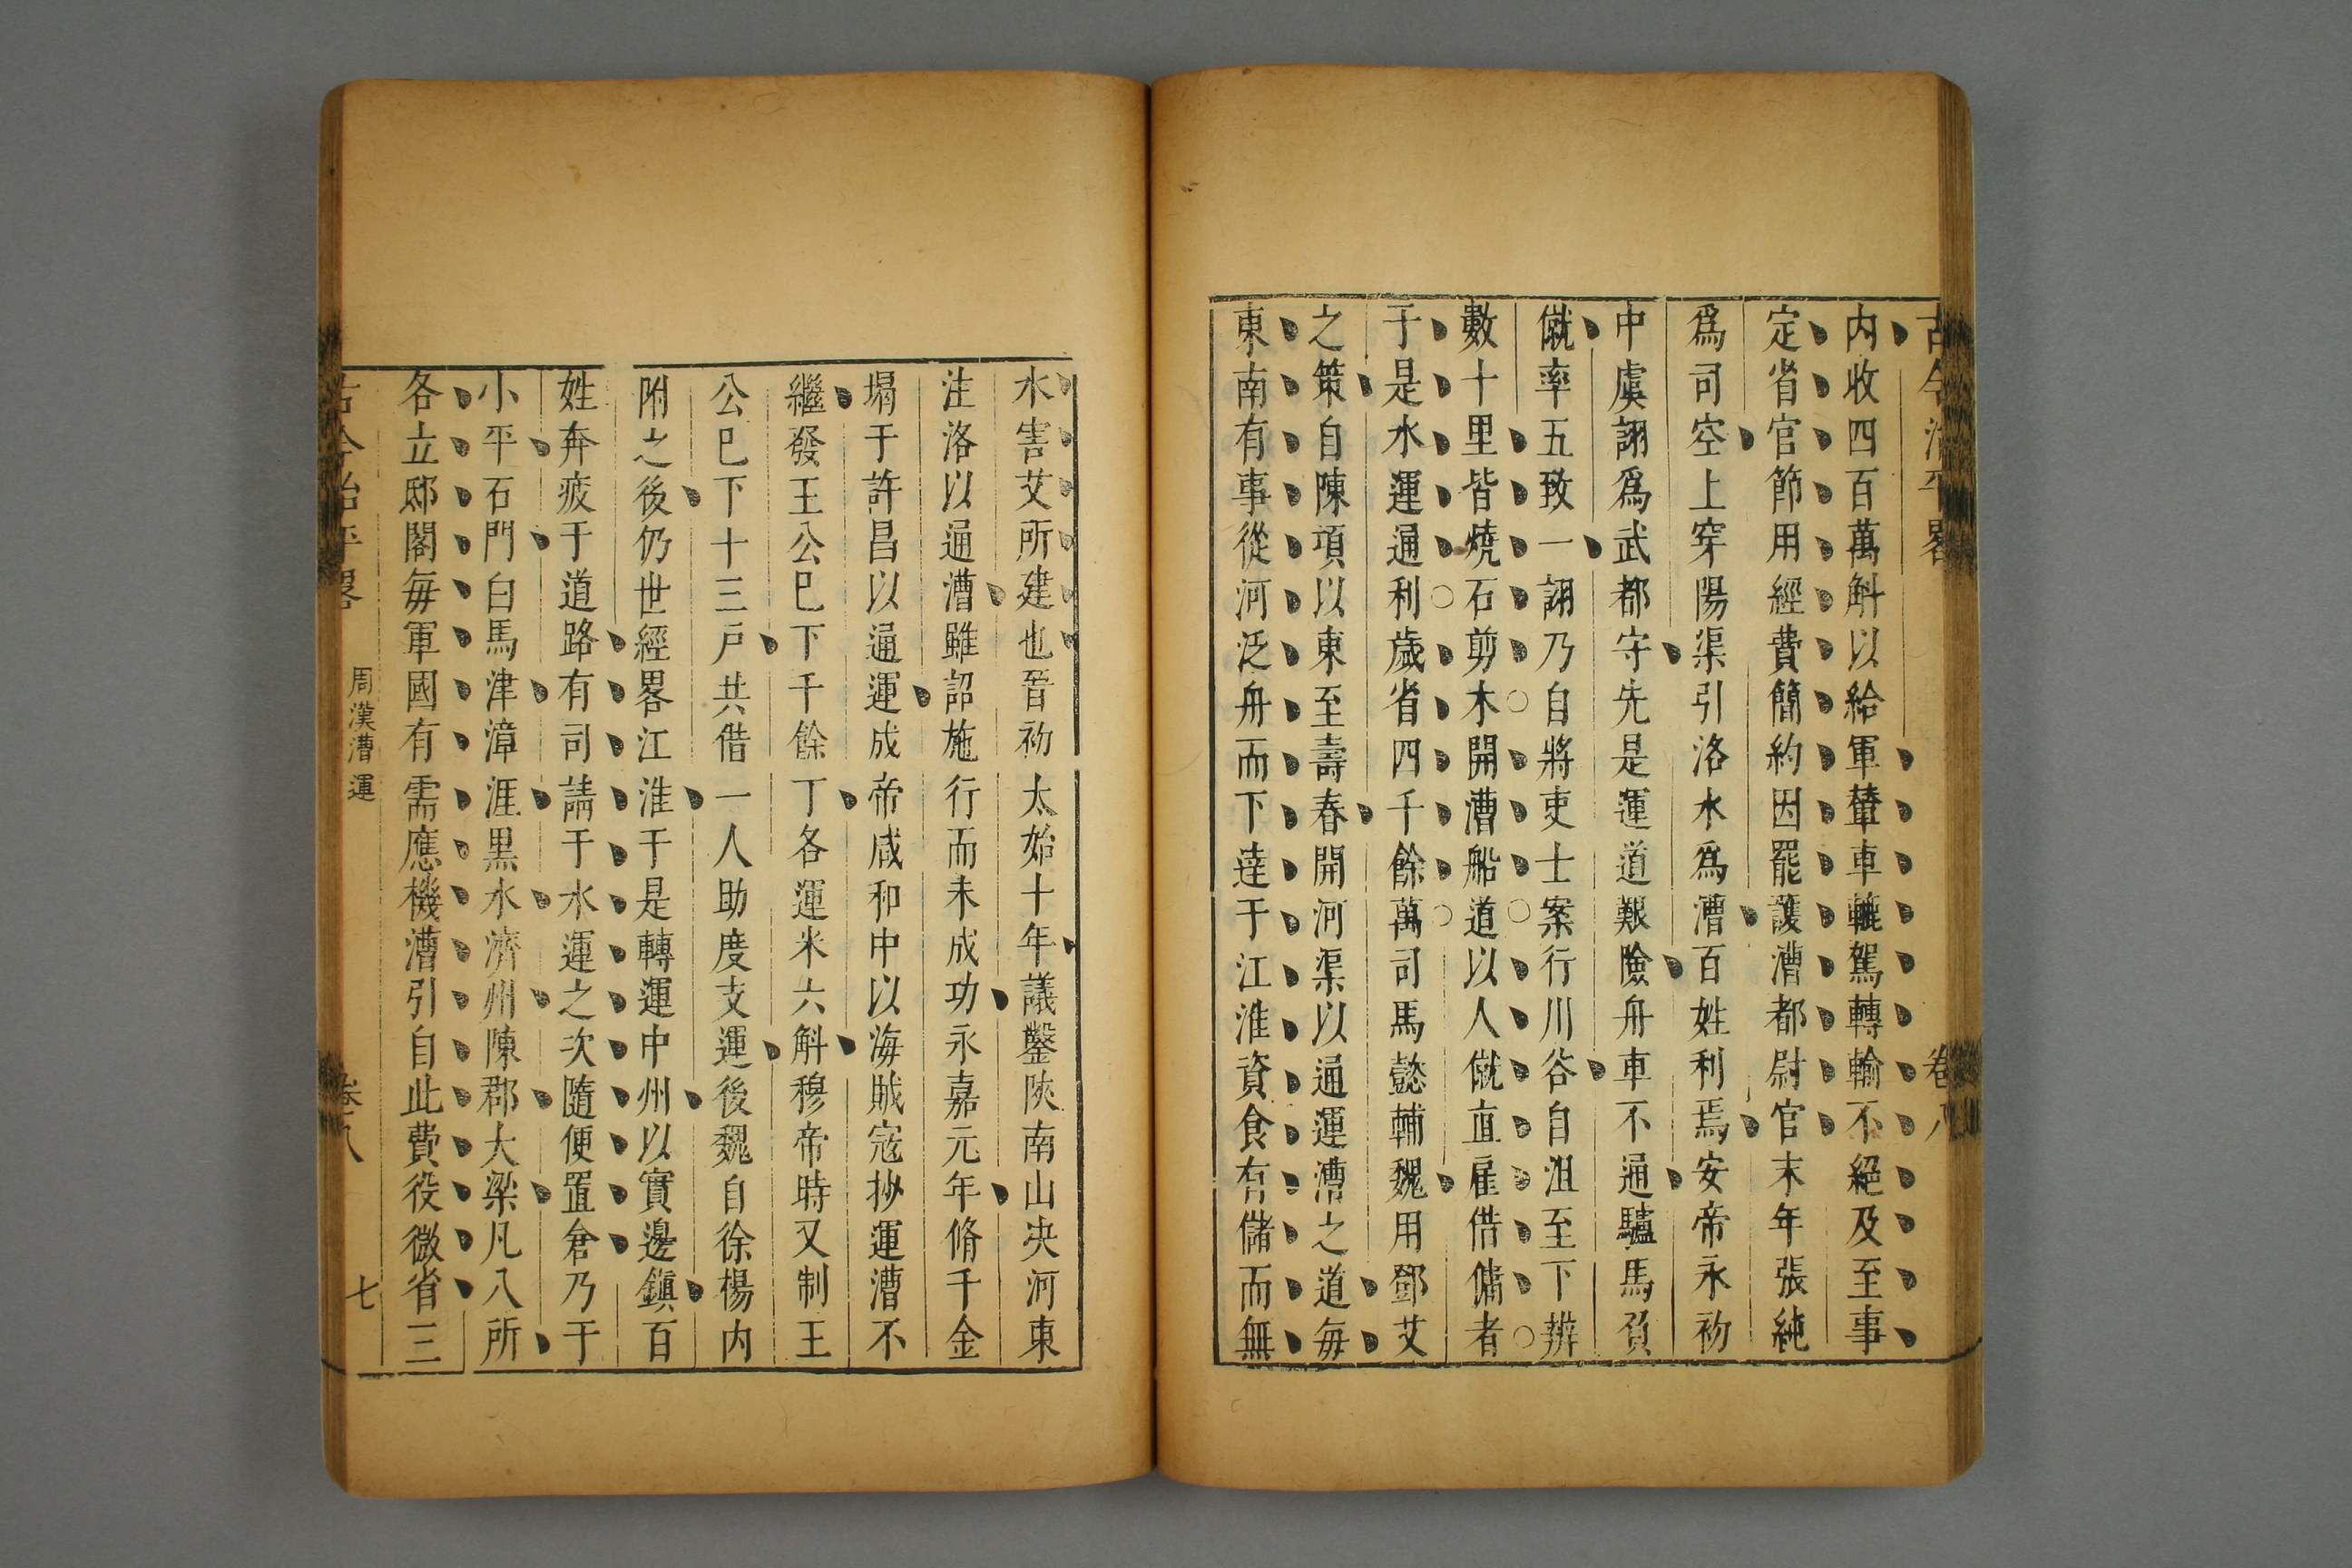 古今治平畧
卷八
内收四百萬斛以給軍輦車轆駕轉輸不絕及至事
定省官節用經費簡約因罷護漕都尉官末年張純
爲司空上穿陽渠引洛水爲漕百姓利焉安帝永初
中虞詡爲武都守先是運道艱險舟車不通驢馬負
僦率五致一詡乃自將吏士案行川谷自沮至下辨
數十里皆燒石剪木開漕船道以人僦直雇借傭者
于是水運通利歲省四千餘萬司馬懿輔魏用鄧艾
之策自陳項以東至壽春開河渠以通運漕之道每
東南有事從河泛舟而下達于江淮資食有儲而無
水害艾所建也晉初太始十年議鑿陝南山決河東
注洛以通漕雖詔施行而未成功永嘉元年脩千金
堨于許昌以通運成帝咸和中以海賊寇抄運漕不
繼發王公巳下千餘丁各運米六斛穆帝時又制王
公巳下十三戶共借一人助度支運後魏自徐楊内
附之後仍世經畧江淮于是轉運中州以實邊鎮百
姓奔疲于道路有司請于水運之次隨便置倉乃于
小平石門白馬津漳涯黒水濟州陳郡大梁凡八所
各立邸閣每軍國有需應機漕引自此費役微省三
古今治平畧
周漢漕運
卷八
七